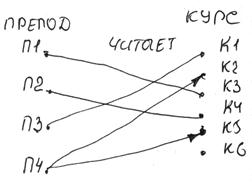 ПРЕПОД ЧИТАЕТ КУРС
П1 К1
К2
П2 К3
К4
П3 К5
П4 К6